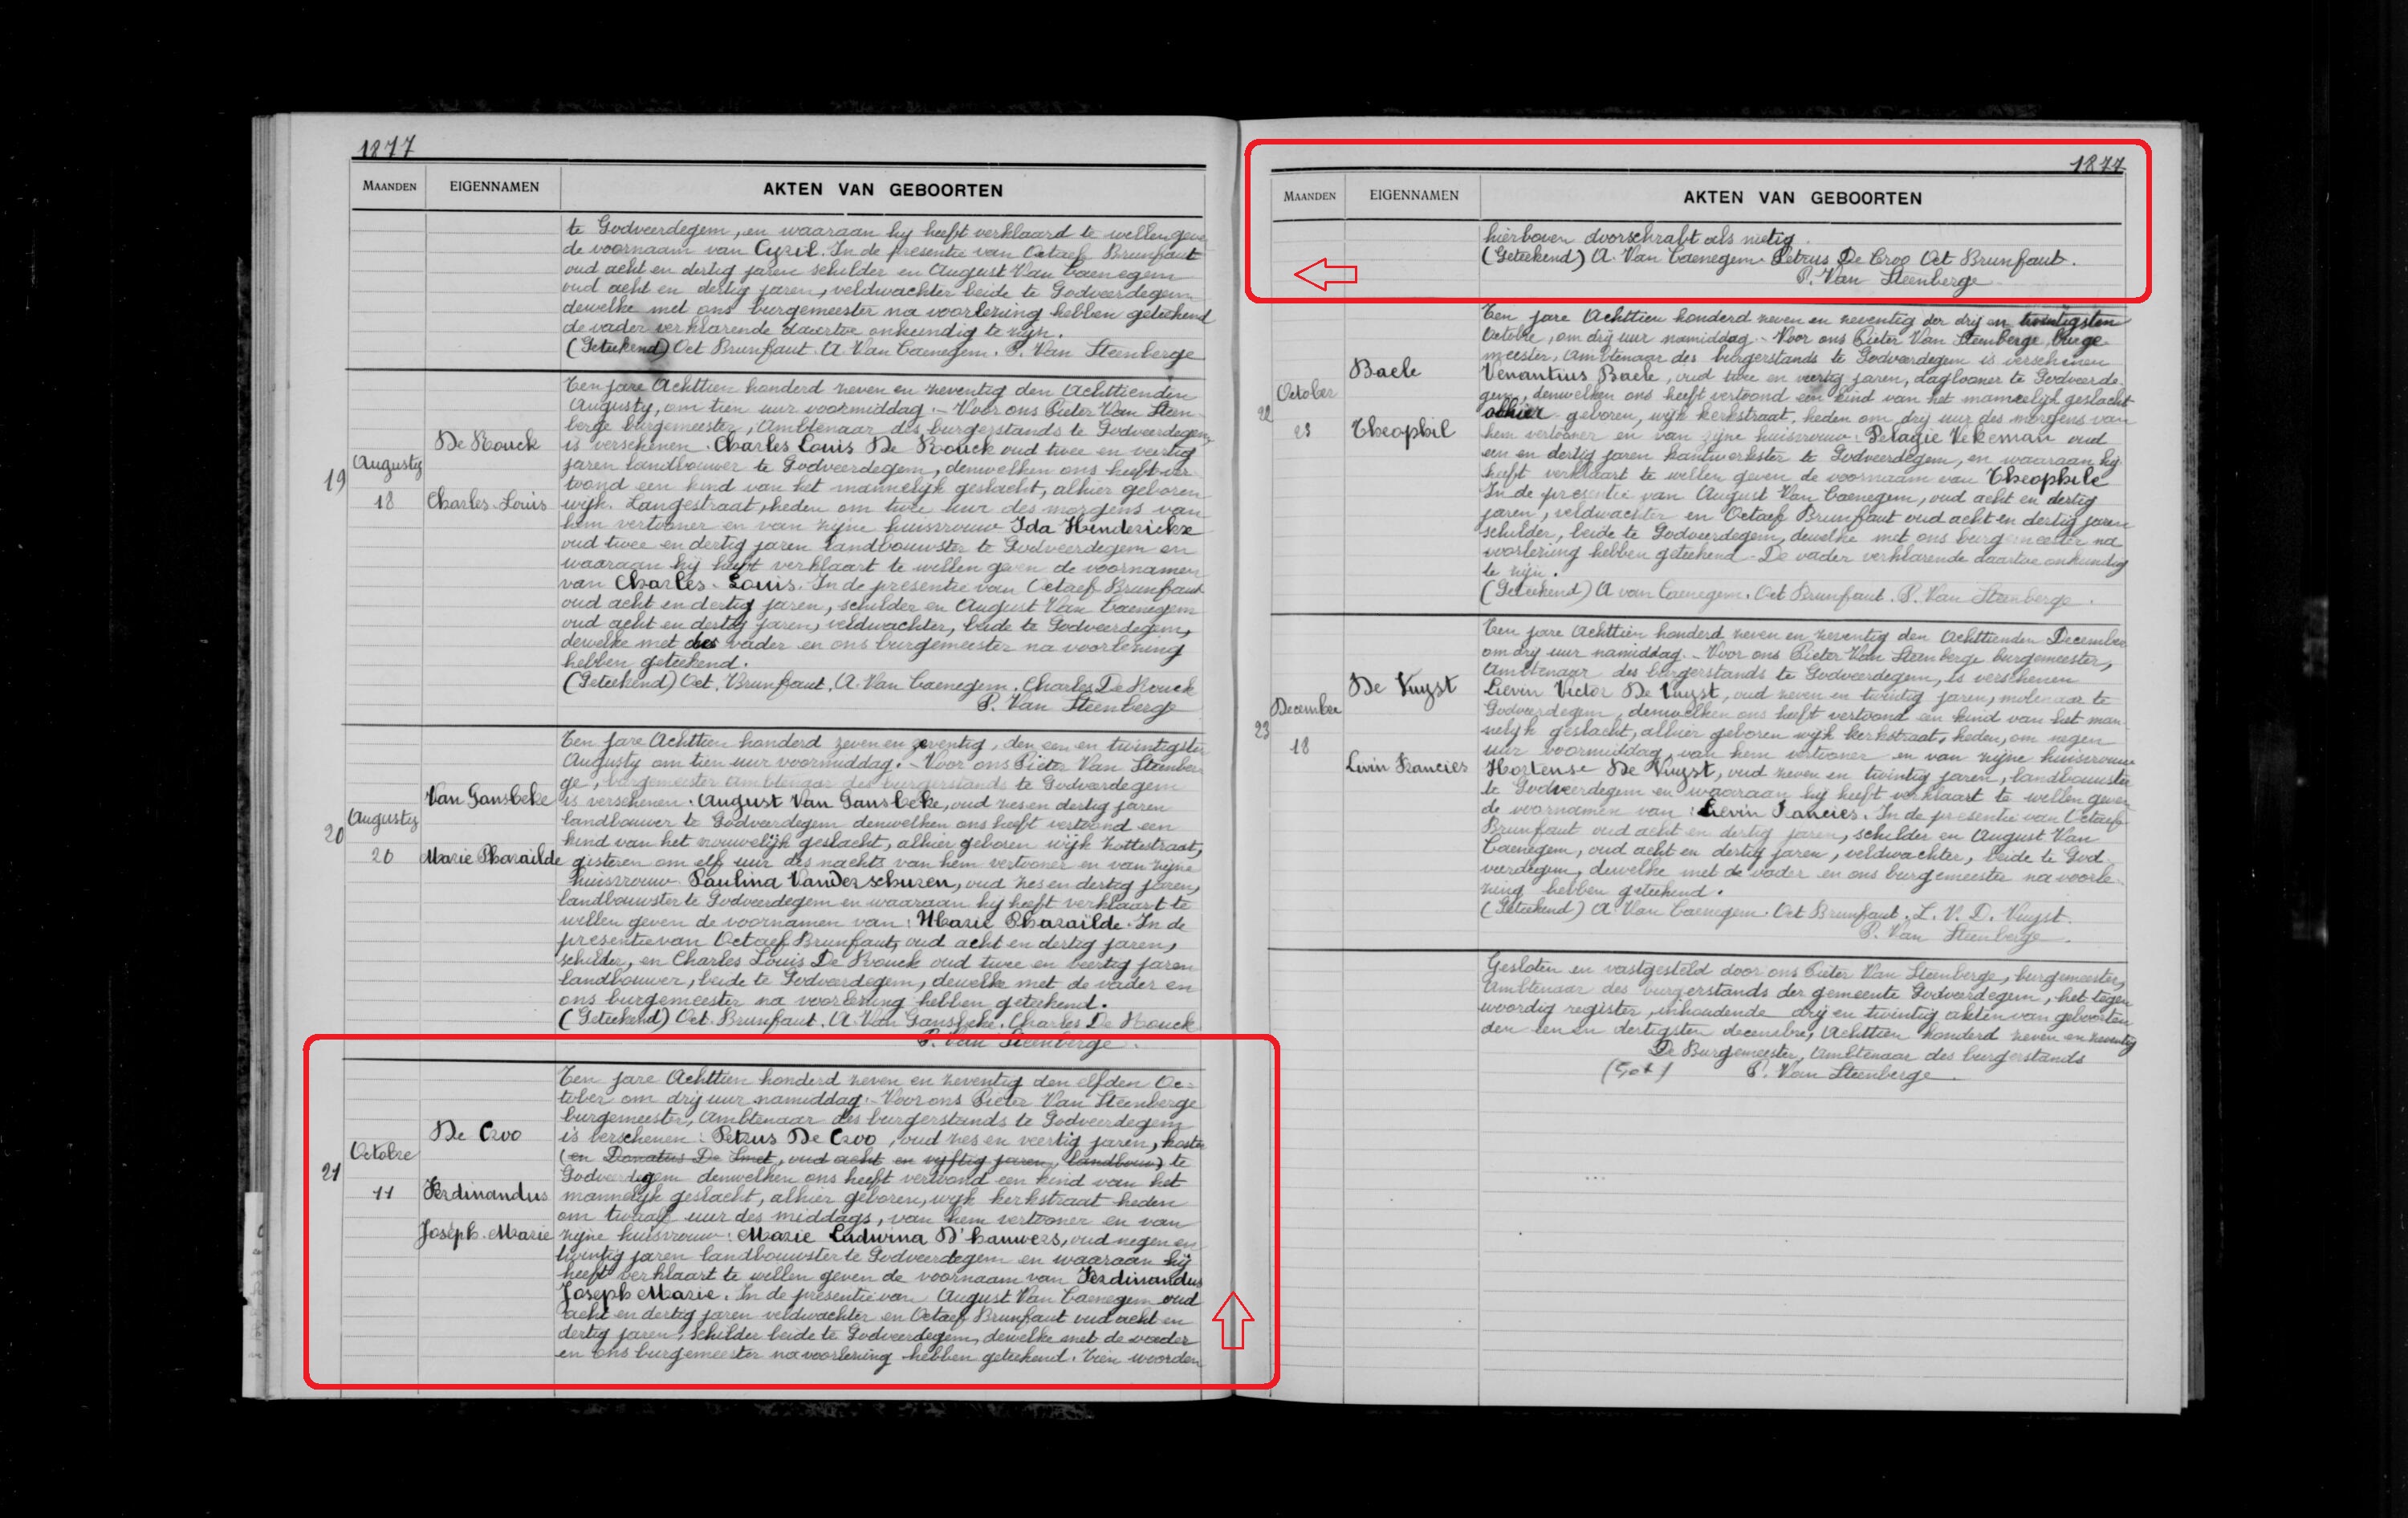 1877
MAANDEN EIGENNAMEN AKTEN VAN GEBOORTEN
te Godveerdegem, en waaraan hy heeft verklaard te willen geven
de voornaam van Cyril. In de presentie van Octaef Brunfaut
oud acht en dertig jaren schilder en August Van Caenegem
oud acht en dertig jaren, veldwachter beide te Godveerdegem
dewelke met ons burgemeester na voorlezing hebben geteekend
de vader verklarende daartoe onkundig te zijn.
(Geteekend) Oct Brunfaut. A Van Caenegem. P. Van Steenberge
19
Augusty
18
De Kouck
Charles-Louis
Ten jare Achttien honderd zeven en zeventig den Achttienden
Augusty, om tien uur voormiddag. - Voor ons Pieter Van Steen-
berge burgemeester, Ambtenaar des burgerstands te Godveerdegem,
is verschenen. Charles Louis De Kouck oud twee en veertig
jaren landbouwer te Godveerdegem, denwelken ons heeft ver-
toond een kind van het mannelijk geslacht, alhier geboren
wijk. Langestraat, heden om twee uur des morgens van
hem vertooner en van zijne huisvrouw Ida Hinderickx
oud twee en dertig jaren landbouwster te Godveerdegem en
waaraan hij heeft verklaart te willen geven de voornamen
van Charles-Louis. In de presentie van Octaef Brunfaut
oud acht en dertig jaren, schilder en August Van Caenegem
oud acht en dertig jaren, veldwachter, beide te Godveerdegem,
dewelke met des vader en ons burgemeester na voorlezing
hebben geteekend.
(Geteekend) Oct. Brunfaut. A. Van Caenegem. Charles De Kouck
P. Van Steenberge
20
Augusty
20
Van Gansbeke
Marie Pharailde
Ten Jare Achttien honderd zeven en zeventig, den een en twintigster
Augusty om tien uur voormiddag. - Voor ons Pieter Van Steenber-
ge, burgemeester Ambtenaar des burgerstands te Godveerdegem
is verschenen. August Van Gansbeke, oud zes en dertig jaren
landbouwer te Godveerdegem denwelken ons heeft vertoond een
kind van het vrouwelijk geslacht, alhier geboren wijk Kottestraat,
gisteren om elf uur des nachts van hem vertooner en van zijne
huisvrouw Paulina Vanderschuren, oud zes en dertig jaren,
landbouwster te Godveerdegem en waaraan hy heeft verklaart te
willen geven de voornamen van: Marie Pharaïlde. In de
presentie van Octaef Brunfaut, oud acht en dertig jaren,
schilder, en Charles Louis De Kouck oud twee en veertig jaren
landbouwer, beide te Godveerdegem, dewelke met de vader en
ons burgemeester na voorlezing hebben geteekend.
(Geteekend) Oct. Brunfaut. A. Van Gansbeke. Charles De Kouck
P. Van Steenberge.
21
Octobre
11
De Croo
Ferdinandus
Joseph-Marie
Ten jare Achttien honderd zeven en zeventig den elfden Oc-
tober om drij uur namiddag. - Voor ons Pieter Van Steenberge
burgemeester, Ambtenaar des burgerstands te Godveerdegem
is verschenen: Petrus De Croo, oud zes en veertig jaren, koster
(en Donatus De Smet, oud acht en vijftig jaren, landbouw) te
Godveerdegem denwelken ons heeft vertoond een kind van het
mannelijk geslacht, alhier geboren, wijk kerkstraat heden
om twaalf uur des middags, van hem vertooner en van
zijne huisvrouw: Marie Ludwina D'hauwers, oud negen en
twintig jaren landbouwster te Godveerdegem en waaraan hij
heeft verklaart te willen geven de voornaam van Ferdinandus
Joseph Marie. In de presentie van August Van Caenegem oud
acht en dertig jaren veldwachter en Octaef Brunfaut oud acht en
dertig jaren, schilder beide te Godveerdegem, dewelke met de vader
en ons burgemeester na voorlezing hebben geteekend. Tien woorden
1877
MAANDEN EIGENNAMEN AKTEN VAN GEBOORTEN
hierboven doorschrabt als nietig.
(Geteekend) A. Van Caenegem. Petrus De Croo Oct Brunfaut.
P. Van Steenberge
22
October
23
Baele
Theophil
Ten jare Achttien honderd zeven en zeventig der drij en twintigsten
Octobre, om drij uur namiddag. - Voor ons Pieter Van Steenberge, burge-
meester, Ambtenaar des burgerstands te Godveerdegem is verschenen
Venantius Baele, oud twee en veertig jaren, daglooner te Godveerde-
gem, denwelken ons heeft vertoond een kind van het mannelijk geslacht
alhier geboren, wijk kerkstraat, heden om drij uur des morgens van
hem vertooner en van zijne huisvrouw: Pelagie Vekeman oud
een en dertig jaren kantwerkster te Godveerdegem, en waaraan hij
heeft verklaart te willen geven de voornaam van Theophile
In de presentie van August Van Caenegem, oud acht en dertig
jaren, veldwachter en Octaef Brunfaut oud acht en dertig jaren
schilder, beide te Godveerdegem, dewelke met ons burgemeester na
voorlezing hebben geteekend - De vader verklarende daartoe onkundig
te zijn.
(Geteekend) A van Caenegem. Oct Brunfaut. P. Van Steenberge.
23
December
18
De Vuyst
Livin Francies
Ten jare Achttien honderd zeven en zeventig den Achttienden December
om drij uur namiddag. Voor ons Pieter Van Steenberge burgemeester,
Ambtenaar des burgerstands te Godveerdegem, is verschenen
Lievin Victor De Vuyst, oud zeven en twintig jaren, molenaar te
Godveerdegem, denwelken ons heeft vertoond een kind van het man-
nelijk geslacht, alhier geboren wijk kerkstraat, heden, om negen
uur voormiddag, van hem vertooner en van zijne huisvrouw
Hortense De Vuyst, oud zeven en twintig jaren, landbouwster
te Godveerdegem en waaraan hij heeft verklaart te willen geven
de voornamen van: Lievin Francies. In de presentie van Octaef
Brunfaut oud acht en dertig jaren, schilder en August Van
Caenegem, oud acht en dertig jaren, veldwachter, beide te God-
veerdegem, dewelke met de vader en ons burgemeester na voorle-
zing hebben geteekend.
(Geteekend) A. Van Caenegem. Oct Brunfaut. L. V. D. Vuyst.
P. Van Steenberge.
Gesloten en vastgesteld door ons Pieter Van Steenberge, burgemeester,
Ambtenaar des burgerstands der gemeente Godveerdegem, het tegen-
woordig register, inhoudende drij en twintig akten van geboorten
den een en dertigsten decembre, Achttien honderd zeven en zeventig
De Burgemeester, Ambtenaar des burgerstands
P. Van Steenberge.